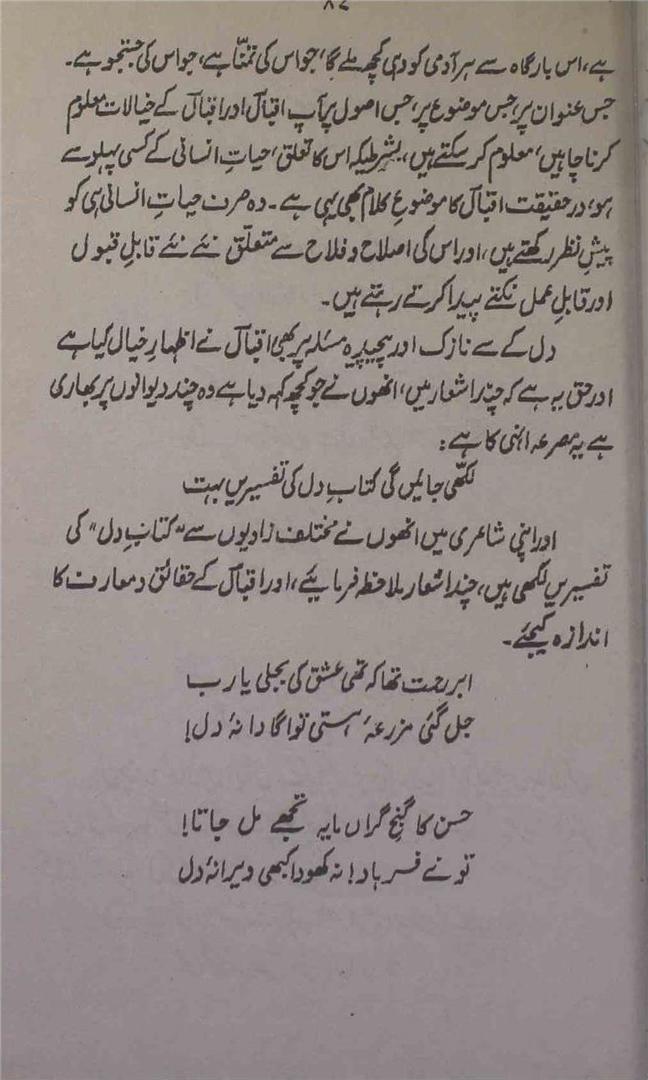 ۸۷
ہے، اس بارگاہ سے ہر آدمی کو وہی کچھ ملے گا، جو اس کی تمنّا ہے، جو اس کی جستجو ہے۔
جس عنوان پر، جس موضوع پر، جس اصول پر آپ اقبالؔ اور اقبالؔ کے خیالات معلوم
کرنا چاہیں، معلوم کر سکتے ہیں، بشرطیکہ اس کا تعلق، حیاتِ انسانی کے کسی پہلو سے
ہو، در حقیقت اقبالؔ کا موضوعِ کلام بھی یہی ہے۔ وہ صرف حیاتِ انسانی ہی کو
پیشِ نظر رکھتے ہیں، اور اس کی اصلاح و فلاح سے متعلّق نئے نئے قابلِ قبول
اور قابلِ عمل نکتے پیدا کرتے رہتے ہیں۔
دل کے سے نازک اور پیچیدہ مسئلہ پر بھی اقبالؔ نے اظہارِ خیال کیا ہے
اور حق یہ ہے کہ چند اشعار میں، انھوں نے جو کچھ کہہ دیا ہے وہ چند دیوانوں پر بھاری
ہے یہ مصرعہ انہی کا ہے:
لکھّی جائیں گی کتابِ دل کی تفسیریں بہت
اور اپنی شاعری میں انھوں نے مختلف زاویوں سے "کتابِ دل" کی
تفسیریں لکھی ہیں، چند اشعار ملاحظہ فرمایئے، اور اقبالؔ کے حقائق و معارف کا
اندازہ کیجئے۔
ابرِ رحمت تھا کہ تھی عشق کی بجلی یا رب
جل گئی مزرعۂ ہستی تو اُگا دانۂ دل!
حسن کا گنجِ گراں مایہ تجھے مل جاتا!
تو نے فرہاد! نہ کھودا کبھی ویرانۂ دل